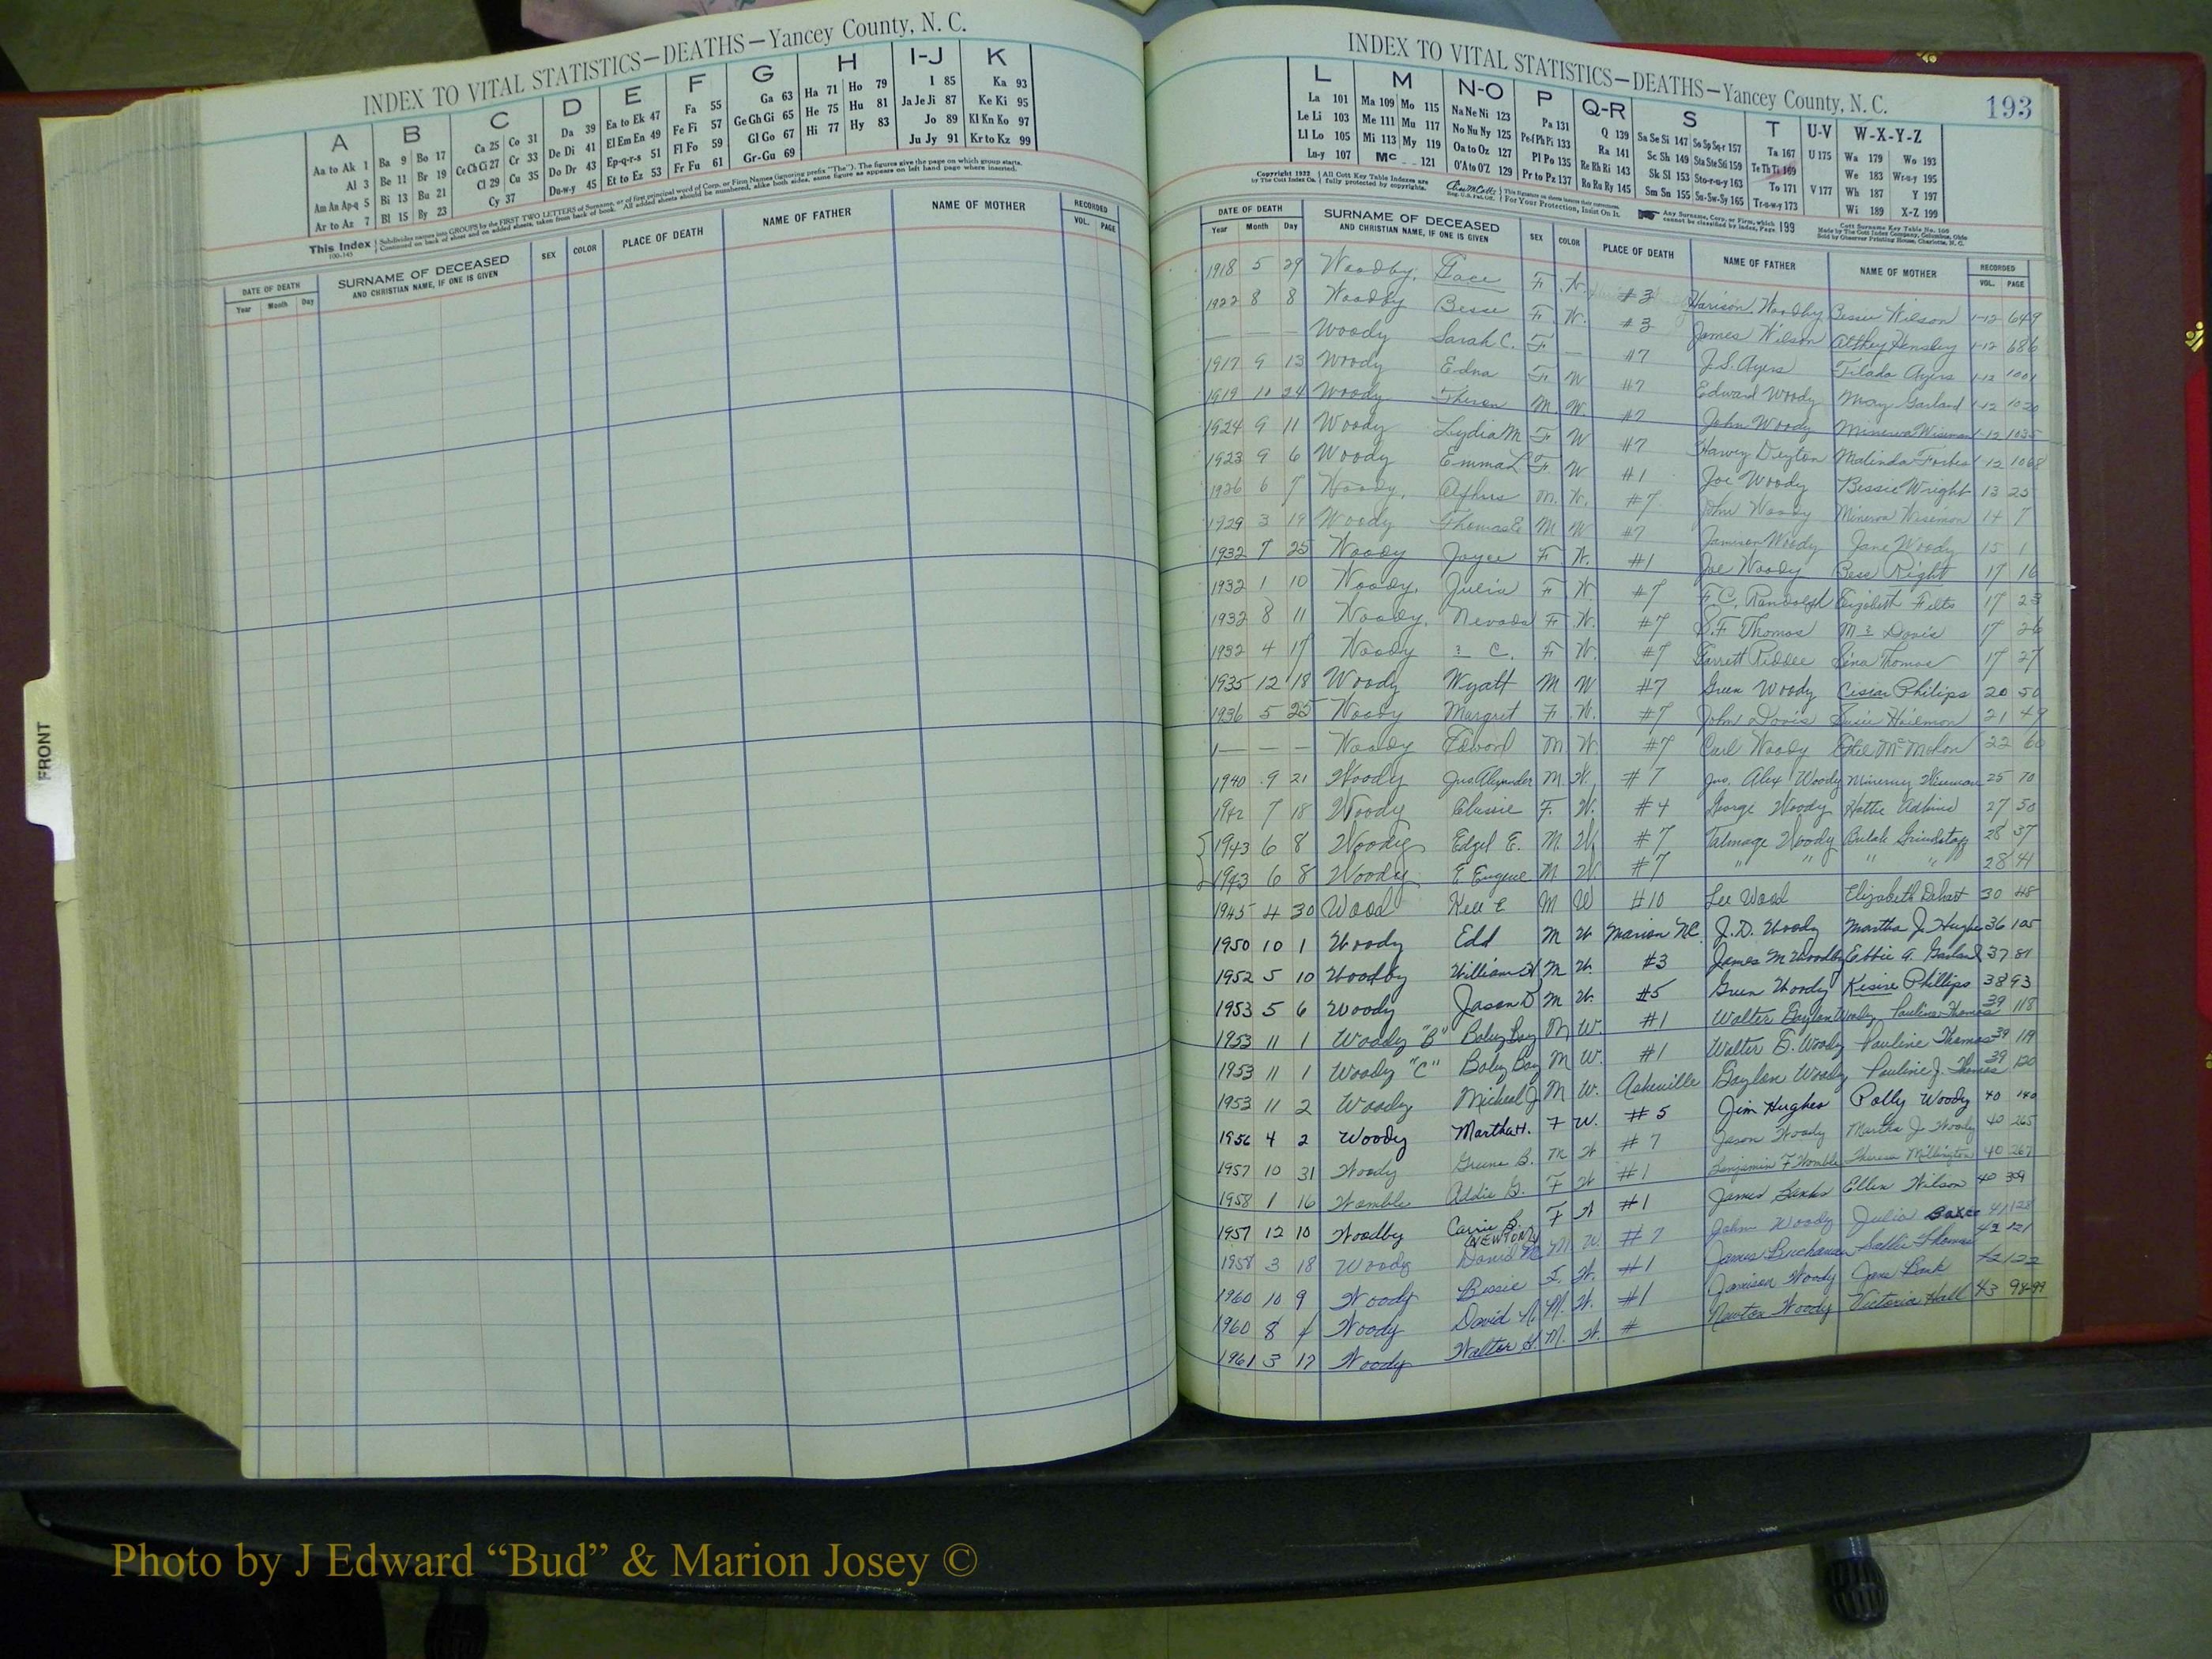 INDEX TO VITAL STATISTICS—DEATHS—Yancey County, N. C.
A B C D E F G H I-J K
Aa to Ak 1 Ba 9 Bo 17 Ca 25 Co 31 Da 39 Ea to Ek 47 Fa 55 Ga 63 Ha 71 Ho 79 I 85 Ka 93
Al 3 Be 11 Br 19 Ce Ch Ci 27 Cr 33 De Di 41 El Em En 49 Fe Fi 57 Ge Gh Gi 65 He 75 Hu 81 Ja Je Ji 87 Ke Ki 95
Am An Ap-q 5 Bi 13 Bu 21 Cl 29 Cu 35 Do Dr 43 Ep-q-r-s 51 Fl Fo 59 Gl Go 67 Hi 77 Hy 83 Jo 89 Kl Kn Ko 97
Ar to Az 7 Bl 15 By 23 Cy 37 Du-w-y 45 Et to Ez 53 Fr Fu 61 Gr-Gu 69 Ju Jy 91 Kr to Kz 99
This Index Subdivides names into GROUPS by the FIRST TWO LETTERS of Surname, or of first principal word of Corp. or Firm Names (ignoring prefix "The"). The figures give the page on which group starts.
Continued on back of sheet and on added sheets, taken from back of book. All added sheets should be numbered, alike both sides, same figure as appears on left hand page where inserted.
100-145
DATE OF DEATH SURNAME OF DECEASED SEX COLOR PLACE OF DEATH NAME OF FATHER NAME OF MOTHER RECORDED
Year Month Day AND CHRISTIAN NAME, IF ONE IS GIVEN VOL. PAGE
FRONT
INDEX TO VITAL STATISTICS—DEATHS—Yancey County, N. C. 193
L M N-O P Q-R S T U-V W-X-Y-Z
La 101 Ma 109 Mo 115 Na Ne Ni 123 Pa 131 Q 139 Sa Se Si 147 So Sp Sq-r 157 Ta 167 U 175 Wa 179 Wo 193
Le Li 103 Me 111 Mu 117 No Nu Ny 125 Pe-f Ph Pi 133 Ra 141 Sc Sh 149 Sta Ste Sti 159 Te Th Ti 169 We 183 Wr-u-y 195
Ll Lo 105 Mi 113 My 119 Oa to Oz 127 Pl Po 135 Re Rh Ri 143 Sk Sl 153 Sto-r-u-y 163 To 171 V 177 Wh 187 Y 197
Lu-y 107 Mc 121 O'A to O'Z 129 Pr to Pz 137 Ro Ru Ry 145 Sm Sn 155 Su-Sw-Sy 165 Tr-u-w-y 173 Wi 189 X-Z 199
Copyright 1922 by The Cott Index Co. All Cott Key Table Indexes are fully protected by copyrights. For Your Protection, Insist On It. Any Surname, Corp. or Firm, which cannot be classified by Index, Page 199 Cott Surname Key Table No. 100 Made by The Cott Index Company, Columbus, Ohio Sold by Observer Printing House, Charlotte, N. C.
DATE OF DEATH SURNAME OF DECEASED SEX COLOR PLACE OF DEATH NAME OF FATHER NAME OF MOTHER RECORDED
Year Month Day AND CHRISTIAN NAME, IF ONE IS GIVEN VOL. PAGE
1918 5 29 Woodby, F W. #3 Harison Woodby Bessie Wilson 1-12 649
1922 8 8 Woodby Besse F. W. #3 James Wilson Hensley 1-12 686
— — — Woody Sarah C. F — #7 J.S. Ayers Tilada Ayers 1-12 1001
1917 9 13 Woody Edna F W #7 Edward Woody May Garland 1-12 1020
1919 10 24 Woody Theron M W. #7 John Woody Minerva Wiseman 1-12 1035
1924 9 11 Woody Lydia M F W #7 Harvey Deyton Malinda Forbes 1-12 1068
1923 9 6 Woody Emma L F W #1 Joe Woody Bessie Wright 13 25
1926 6 7 Woody, M. W. #7 John Woody Minerva Wisemon 14 7
1929 3 19 Woody Thomas E M W #7 Jamison Woody Jane Woody 15 1
1932 7 25 Woody Joyce F W. #1 Joe Woody Bess Right 17 16
1932 1 10 Woody, Julia F W. #7 F.C. Randolph Elizabeth Felts 17 23
1932 8 11 Woody, Nevada F W. #7 S.F Thomas M ? Davis 17 26
1932 4 17 Woody ? C. F W. #7 Garrett Riddle Lina Thomas 17 27
1935 12 18 Woody Wyatt M W #7 Green Woody Philips 20 50
1936 5 25 Woody Margret F. W. #7 John Davis Susie 21 49
— — — Woody Edword M W. #7 Carl Woody McMahon 22 60
1940 9 21 Woody Jas Alexander M. W. #7 Jas. Alex Woody Minervy Wiseman 25 70
1942 7 18 Woody Clussie F. W. #4 George Woody Hattie Adkins 27 50
1943 6 8 Woody Edgel E. M. W. #7 Talmage Woody Bulah Grindstaff 28 37
1943 6 8 Woody E Eugene M W #7 " " " " 28 41
1945 4 30 Wood E M W #10 Lee Wood Elizabeth Dehart 30 48
1950 10 1 Woody Edd M W Marion NC. J.D. Woody Martha J. Hughes 36 105
1952 5 10 Woodby William H M W. #3 James M Woodby Ebbie A. Garland 37 87
1953 5 6 Woody Jason D M W. #5 Green Woody Kisire Phillips 38 93
1953 11 1 Woody "B" Baby Boy M W. #1 Walter Gaylon Woody Pauline Thomas 39 118
1953 11 1 Woody "C" Baby Boy M W. #1 Walter G. Woody Pauline Thomas 39 119
1953 11 2 Woody Micheal J M W. Asheville Gaylon Woody Pauline J. Thomas 39 120
1956 4 2 Woody Martha H. F W. #5 Jim Hughes Polly Woody 40 140
1957 10 31 Woody Greene B. M W #7 Jason Woody Martha J. Woody 40 265
1958 1 16 Womble Addie G. F W #1 Benjamin F Womble Theresa Millington 40 267
1957 12 10 Woodby Carrie B. F W #1 James Banks Ellen Wilson 40 309
1958 3 18 Woody David N. (NEWTON) M. W. #7 John Woody Julia Baker 41 128
1960 10 9 Woody Bessie F. W. #1 James Buchanan Sallie Thomas 42 121
1960 8 Woody David N. M. W. #1 Jamison Woody Jane 42 122
1961 3 17 Woody Walter H. M. W. # Newton Woody Victoria Hall 43 98-99
Photo by J Edward “Bud” & Marion Josey ©